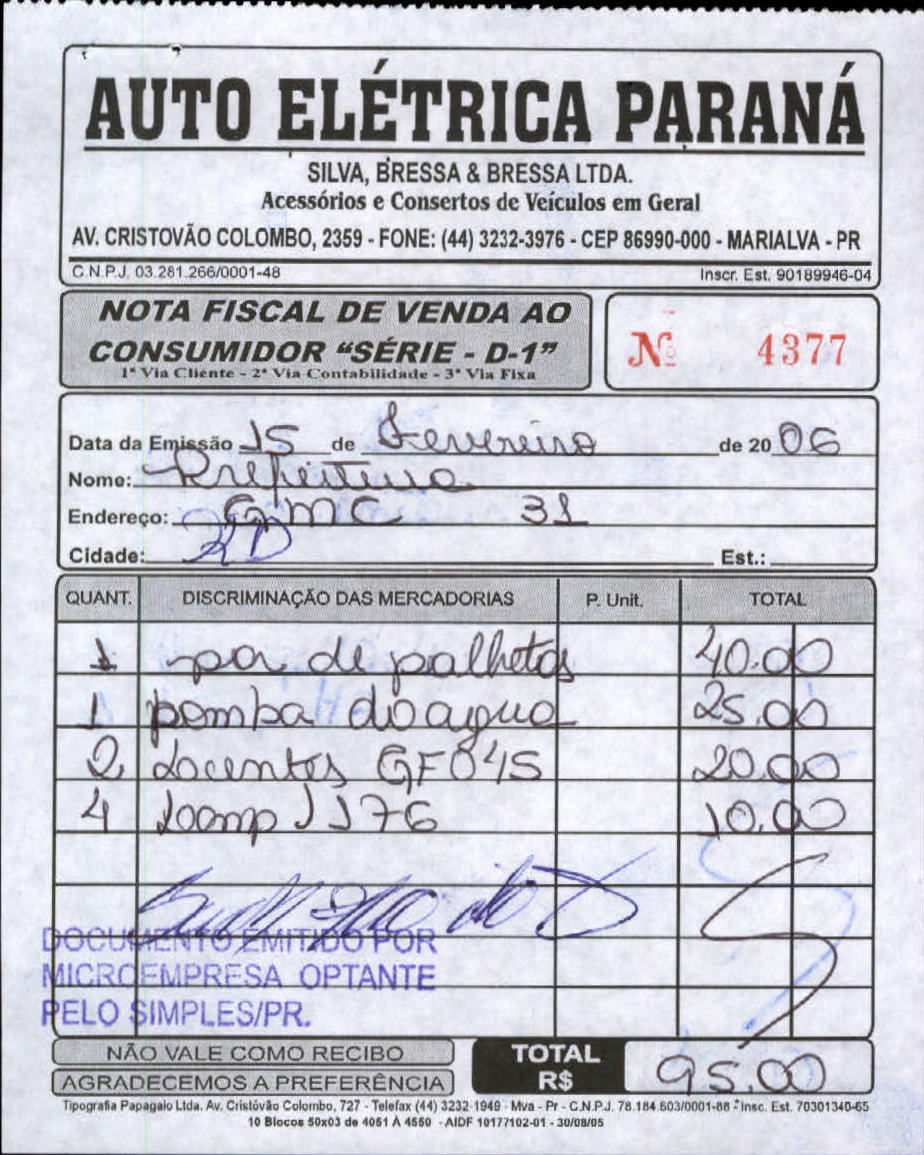 AUTO ELÉTRICA PARANÁ
SILVA, BRESSA & BRESSA LTDA.
Acessórios e Consertos de Veículos em Geral
AV. CRISTOVÃO COLOMBO, 2359 - FONE: (44) 3232-3976 - CEP 86990-000 - MARIALVA - PR
C.N.P.J. 03.281.266/0001-48 Inscr. Est. 90189946-04
NOTA FISCAL DE VENDA AO
CONSUMIDOR "SÉRIE - D-1"
1ª Via Cliente - 2ª Via Contabilidade - 3ª Via Fixa
Nº 4377
Data da Emissão 15 de Fevereiro de 2006
Nome: Prefeitura
Endereço: GMC 31
Cidade: Est.:
QUANT. DISCRIMINAÇÃO DAS MERCADORIAS P. Unit. TOTAL
1 par de palhetas 40.00
1 bomba do agua 25.00
2 GF 045 20.00
4 1176 10.00
DOCUMENTO EMITIDO POR
MICROEMPRESA OPTANTE
PELO SIMPLES/PR.
NÃO VALE COMO RECIBO
AGRADECEMOS A PREFERÊNCIA
TOTAL R$ 95.00
Tipografia Papagaio Ltda. Av. Cristóvão Colombo, 727 - Telefax (44) 3232-1949 - Mva - Pr - C.N.P.J. 78.184.603/0001-88 - Insc. Est. 70301340-65
10 Blocos 50x03 de 4051 À 4550 - AIDF 10177102-01 - 30/08/05